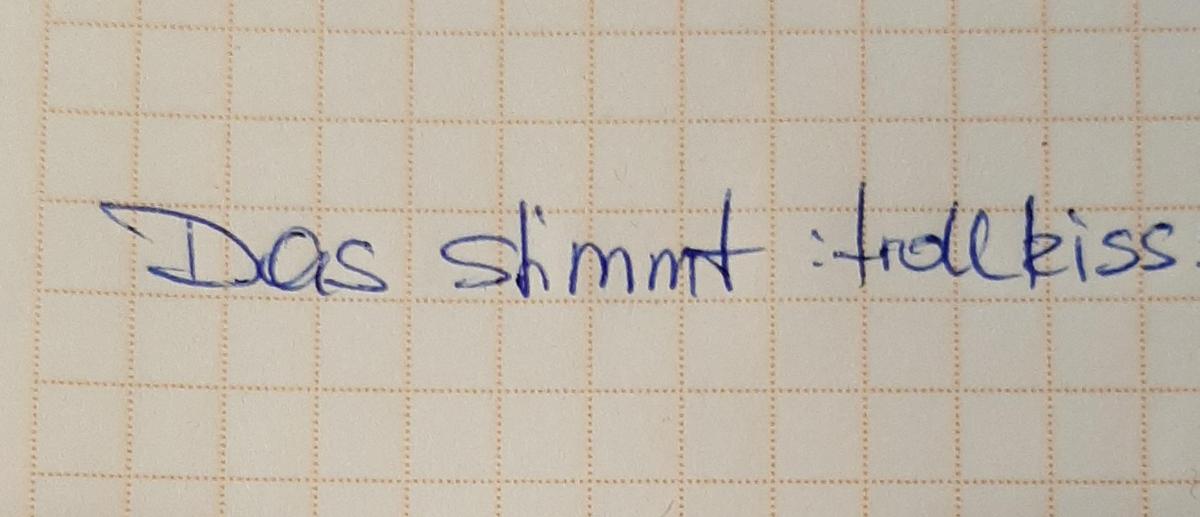 Das stimmt :trollkiss.